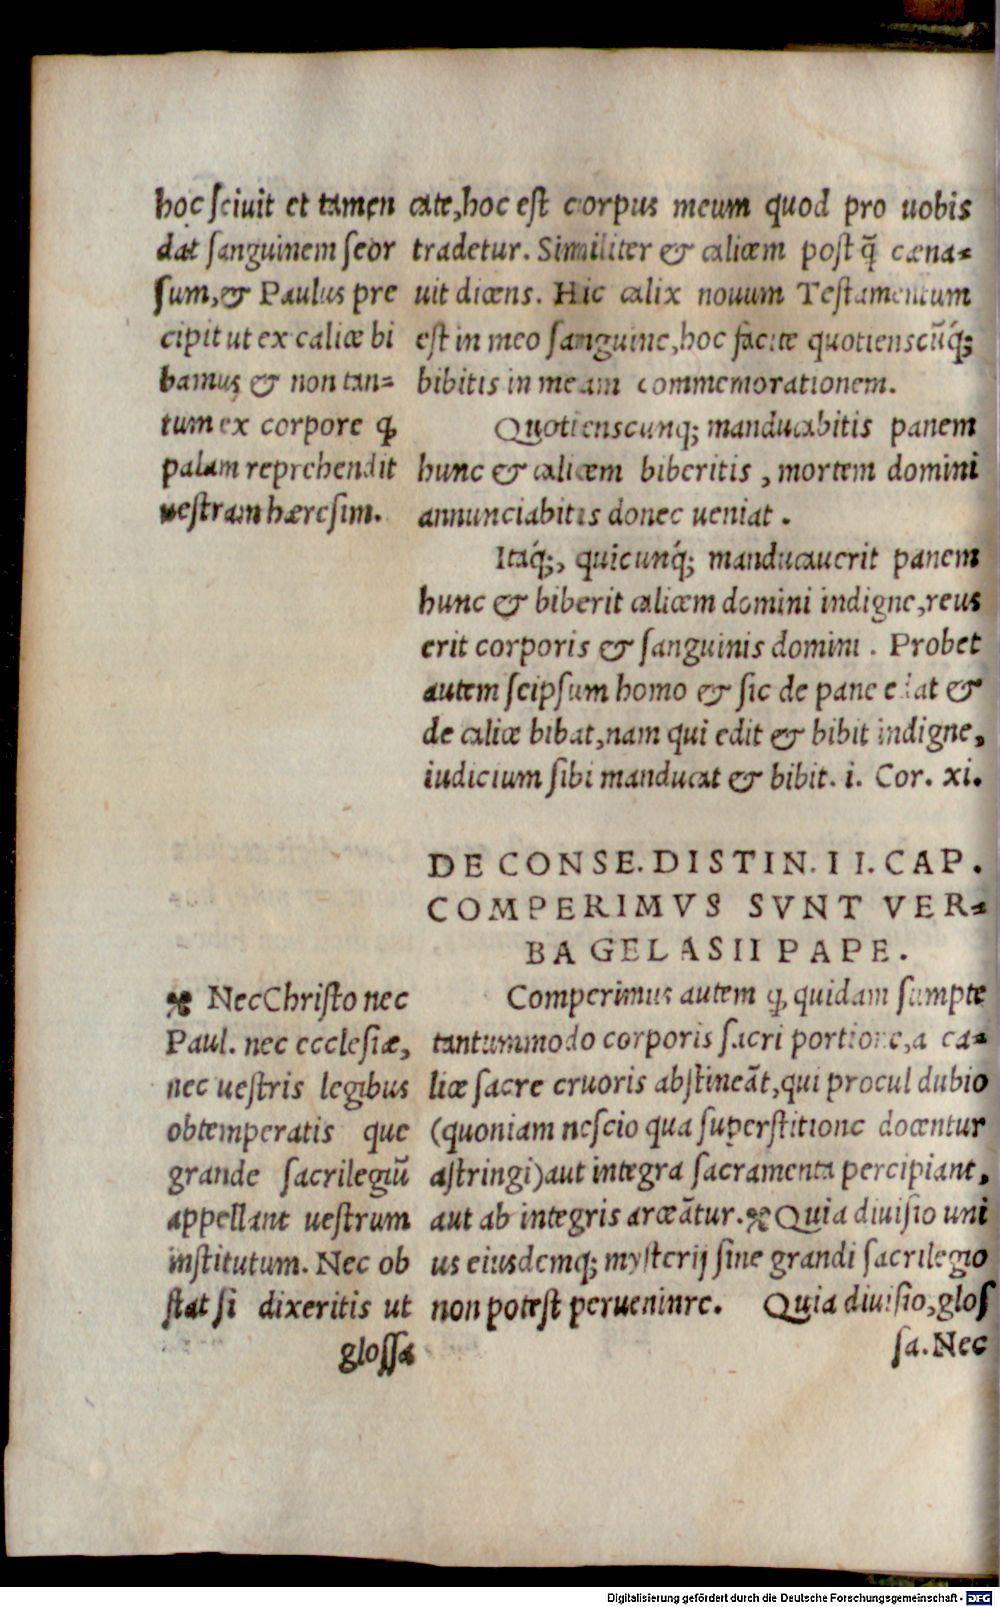 hoc sciuit et tamen
dat sanguinem seor
sum, & Paulus pre
cipit ut ex calice bi
bamus & non tan=
tum ex corpore ꝙ
palam reprehendit
uestram hæresim.
cate, hoc est corpus meum quod pro uobis
tradetur. Similiter & calicem post q̃ cæna=
uit dicens. Hic calix nouum Testamentum
est in meo sanguine, hoc facite quotienscũq́;
bibitis in meam commemorationem.
Quotienscunq; manducabitis panem
hunc & calicem biberitis, mortem domini
annunciabitis donec ueniat.
Itaq́;, quicunq́; manducauerit panem
hunc & biberit calicem domini indigne, reus
erit corporis & sanguinis domini. Probet
autem seipsum homo & sic de pane edat &
de calice bibat, nam qui edit & bibit indigne,
iudicium sibi manducat & bibit. i. Cor. xi.
DE CONSE. DISTIN. II. CAP.
COMPERIMVS SVNT VER=
BA GELASII PAPE.
Comperimus autem ꝙ quidam sumpte
tantummodo corporis sacri portione, a ca=
lice sacre cruoris abstineãt, qui procul dubio
(quoniam nescio qua superstitione docentur
astringi) aut integra sacramenta percipiant,
aut ab integris arceãtur. ※ Quia diuisio uni
us eiusdemq; mysterij sine grandi sacrilegio
non potest perueninre. Quia diuisio, glos
sa. Nec
※ Nec Christo nec
Paul. nec ecclesiæ,
nec uestris legibus
obtemperatis que
grande sacrilegiũ
appellant uestrum
institutum. Nec ob
stat si dixeritis ut
glossa
Digitalisierung gefördert durch die Deutsche Forschungsgemeinschaft - DFG